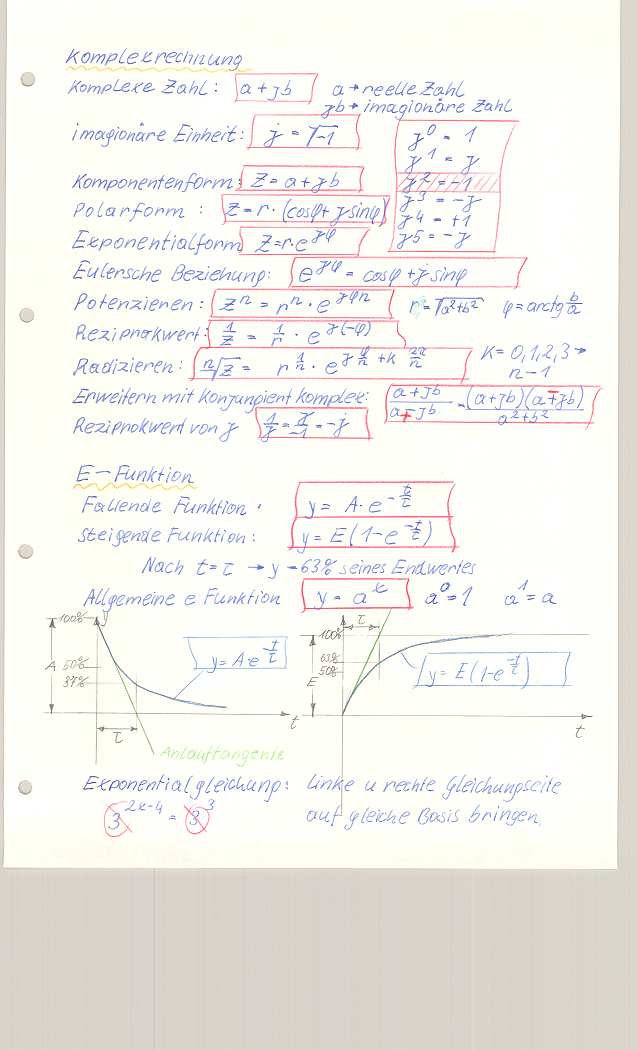 Komplexrechnung
Komplexe Zahl: a + jb a → reelle Zahl
jb → imagionäre Zahl
imagionäre Einheit: j = √-1
j⁰ = 1
j¹ = j
j² = -1
j³ = -j
j⁴ = +1
j5 = -j
Komponentenform: Z = a + jb
Polarform : Z = r · (cosφ + j sinφ)
Exponentialform Z = r·e^jφ
Eulersche Beziehung: e^jφ = cosφ + j sinφ
Potenzieren: Z^n = r^n · e^jφn r = √a²+b² φ = arctg b/a
Reziprokwert: 1/Z = 1/r · e^j(-φ)
Radizieren: n√Z = r^1/n · e^j φ/n + K 2π/n K = 0,1,2,3 →
n-1
Erweitern mit Konjangiert Komplex: a + jb / a ∓ jb = (a + jb)(a ∓ jb) / a² + b²
Reziprokwert von j 1/j = j/-1 = -j
E - Funktion
Fallende Funktion · y = A · e^-t/τ
Steigende Funktion: y = E(1-e^-t/τ)
Nach t = τ → y = 63% seines Endwertes
Allgemeine e Funktion y = a^x a⁰ = 1 a¹ = a
100% y
A
50%
37%
y = A·e^-t/τ
τ
t
Anlauftangente
τ
100%
63%
50%
E
y = E(1-e^-t/τ)
t
Exponentialgleichung: linke u rechte Gleichungseite
3^2x-4 = 3^3 auf gleiche Basis bringen.